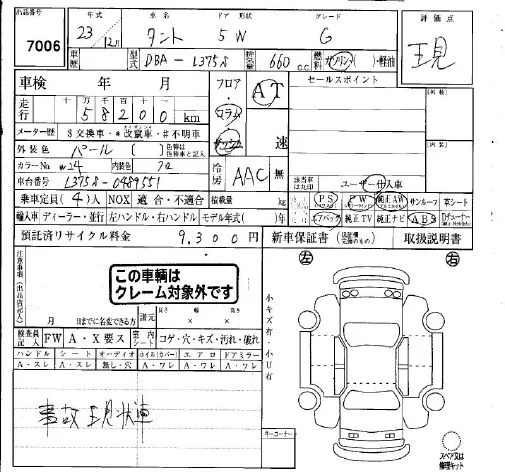 出品番号 年式 車名 ドア 形状 グレード 評価点
7006 23 12月 タント 5 W G 現
車歴 型式 DBA-L375S 排気量 660 c.c. 燃料 ガソリン ( )・軽油
車検 年 月 フロア・コラム AT セールスポイント
走行 十 万 千 百 十
5 8 2 0 0 km
メーター歴 $交換車・*改竄車・#不明車 速
外装色 パール ( )色替等 色替車と記入
カラーNo W24 内装色 冷房 AAC 無 該当車は丸印 ユーザー仕入車
車台番号 L375S-0489551
乗車定員(4)人 NOX 適合・不適合 積載量 kg PS PW 純正AW サンルーフ 革シート
輸入車 ディーラー・並行 左ハンドル・右ハンドル モデル年式( )年 エアバック 純正TV 純正ナビ ABS
預託済リサイクル料金 9,300円 新車保証書 取扱説明書
注意事項(出品店記入) この車輌は 左 右
クレーム対象外です
月 日までに名変できる方 諸元 長さ 幅 高さ
× × 小キズ有・小U有
検査員記入 FW A・X要ス 室内シート コゲ・穴・キズ・汚れ・破れ
ハンドル シート オーディオ ホイル(カバー) エアロ ドアミラー
A・スレ A・スレ 無し・穴 A・ワレ A・ワレ A・ワレ
事故現状車
キーコーナー
スペア又は
修理キット